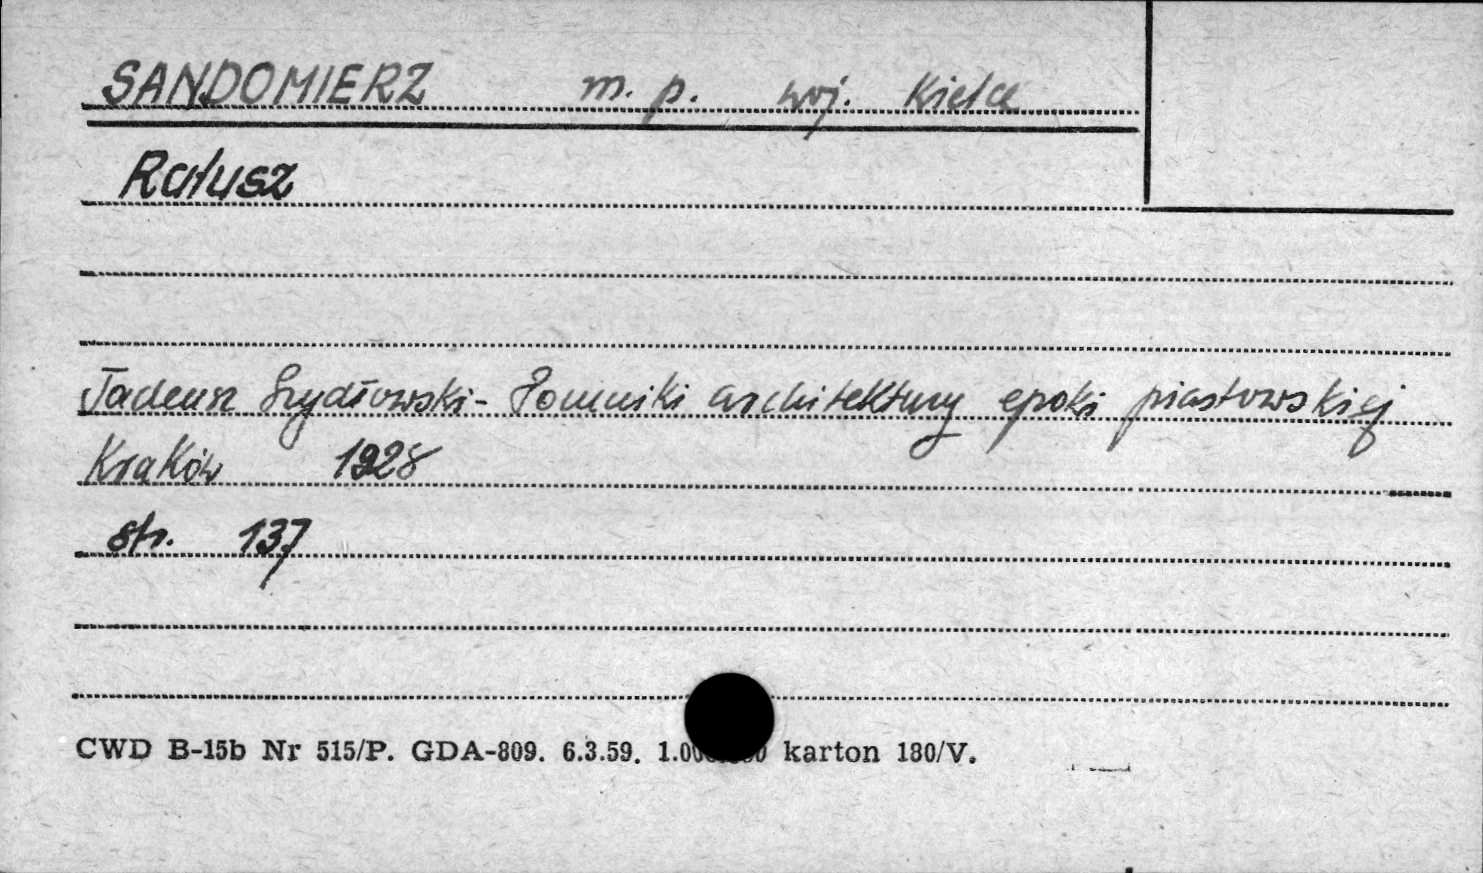 SANDOMIERZ m. p. woj. Kielce
Ratusz
Tadeusz Szydłowski - Pomniki architektury epoki piastowskiej
Kraków 1928
str. 137
CWD B-15b Nr 515/P. GDA-809. 6.3.59. karton 180/V.